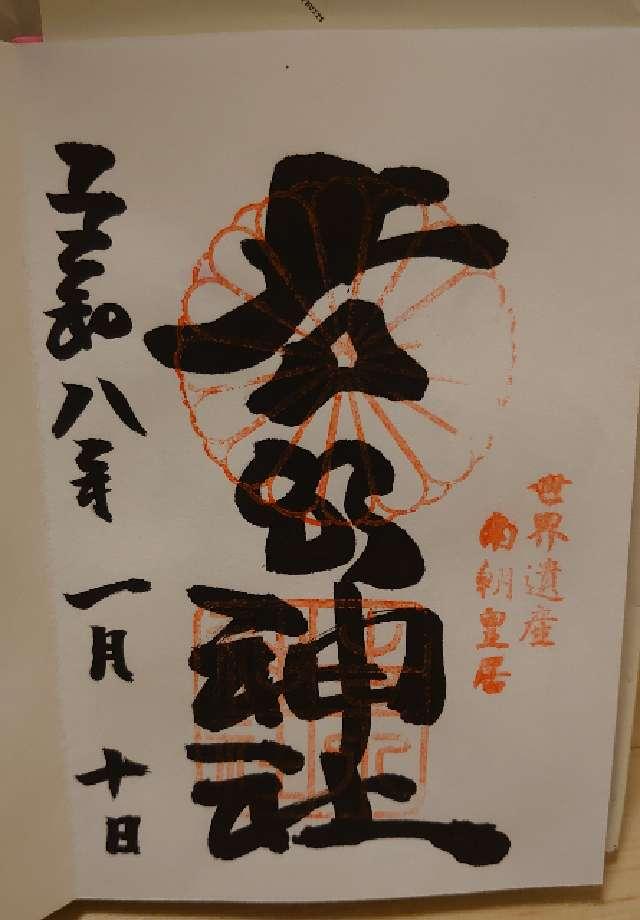 世界遺産
南朝皇居
吉水神社
令和八年 一月 十日